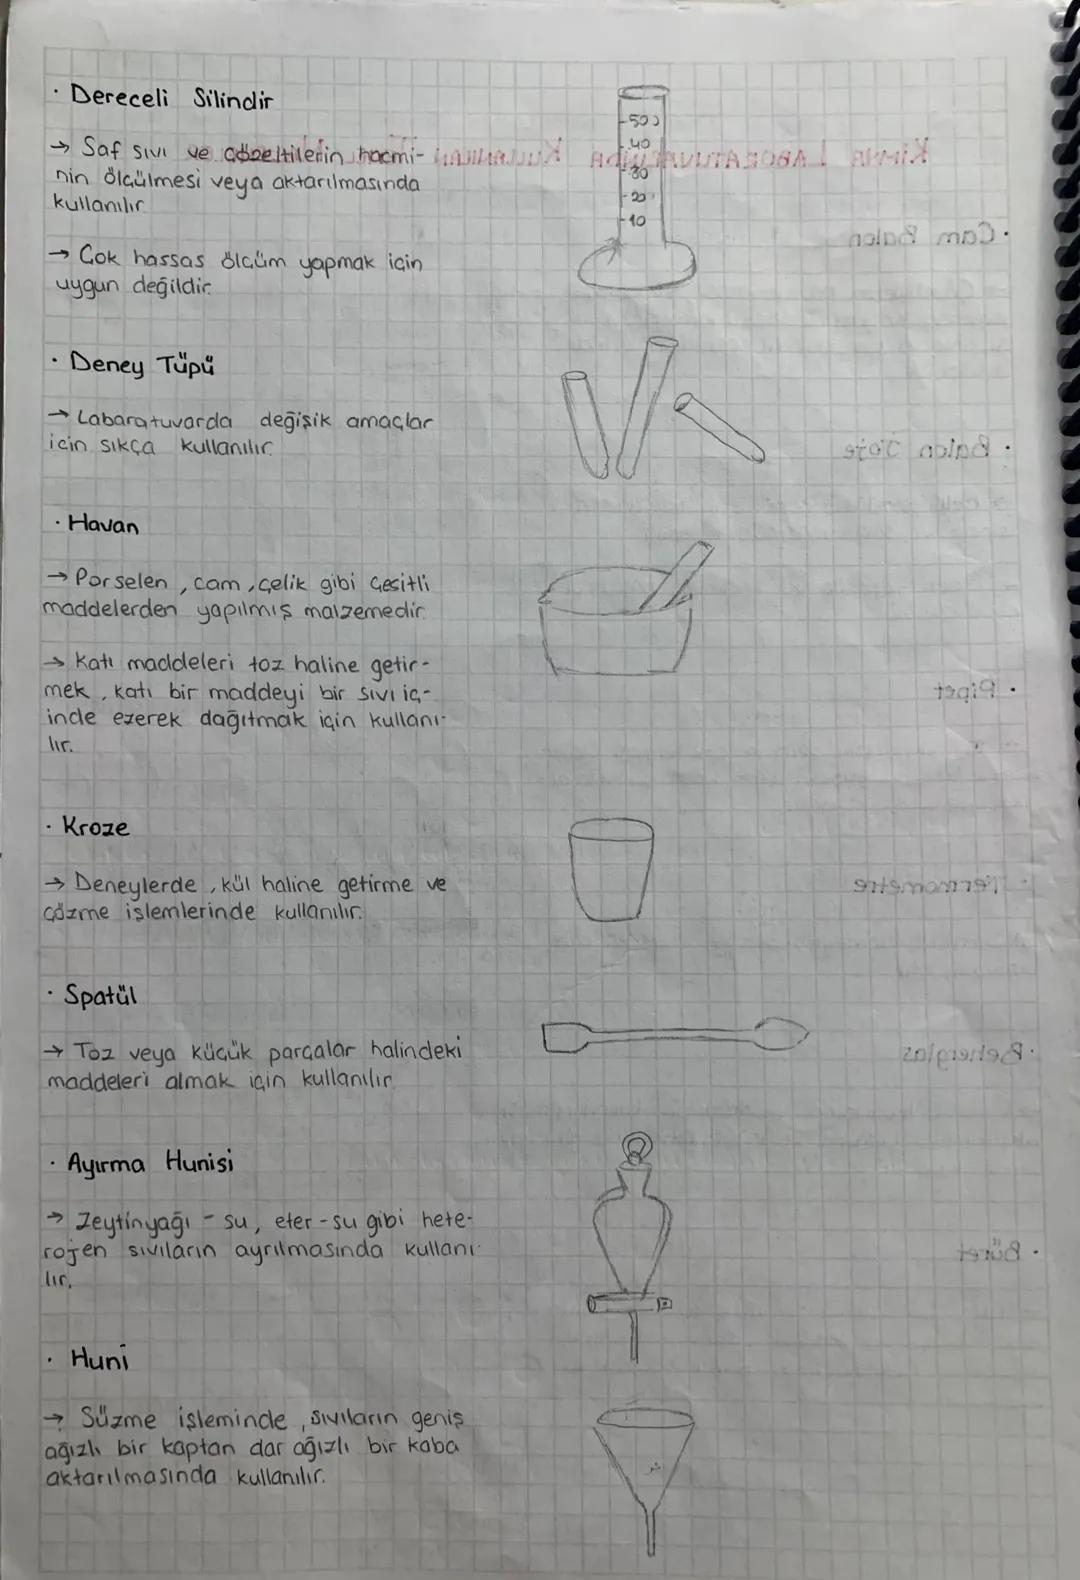 · Dereceli Silindir
→ Saf sıvı ve çözeltilerin hacmi-
nin ölçülmesi veya aktarılmasında
kullanılır.
→ Çok hassas ölçüm yapmak için
uygun değildir.
50
40
30
20
10
· Deney Tüpü
→ Labaratuvarda değişik amaçlar
için sıkça kullanılır.
· Havan
→ Porselen, cam, çelik gibi çeşitli
maddelerden yapılmış malzemedir.
→ Katı maddeleri toz haline getir-
mek, katı bir maddeyi bir sıvı iç-
inde ezerek dağıtmak için kullanı-
lır.
· Kroze
→ Deneylerde, kül haline getirme ve
çözme işlemlerinde kullanılır.
· Spatül
→ Toz veya küçük parçalar halindeki
maddeleri almak için kullanılır.
· Ayırma Hunisi
→ Zeytinyağı - su, eter - su gibi hete-
rojen sıvıların ayrılmasında kullanı-
lır.
· Huni
→ Süzme işleminde, sıvıların geniş
ağızlı bir kaptan dar ağızlı bir kaba
aktarılmasında kullanılır.
· Cam Balon
· Balon Joje
· Pipet
· Termometre
· Beherglas
· Büret